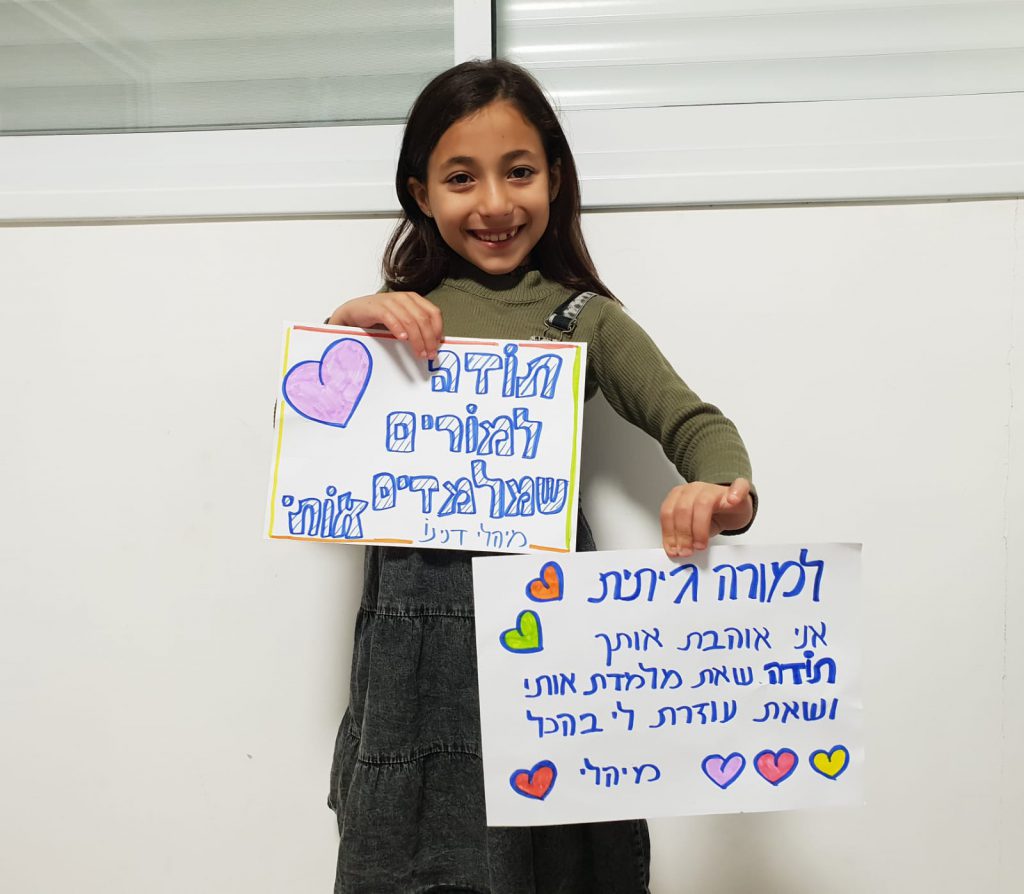 תודה
למורים
שמלמדים אותי
מיהלי דנינו
למורה גיתית
אני אוהבת אותך
תודה שאת מלמדת אותי
ושאת עוזרת לי בהכל
מיהלי